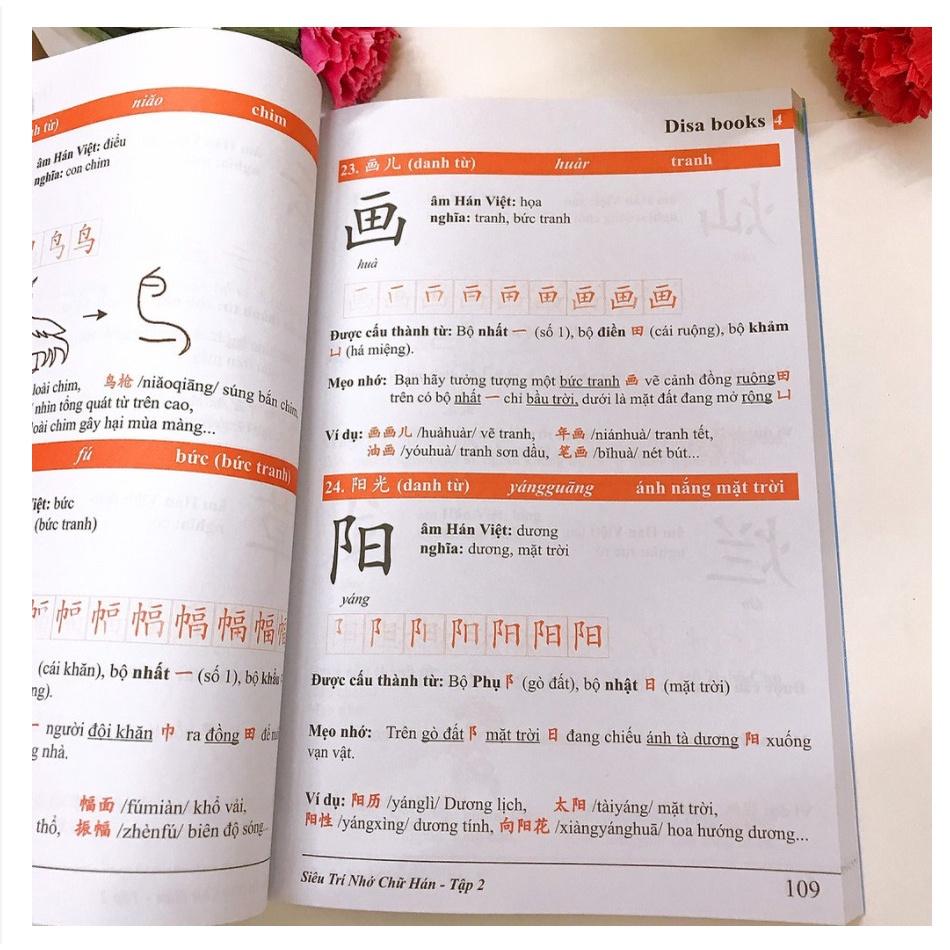 niǎo chim
âm Hán Việt: điểu
nghĩa: con chim
鸟 鸟
loài chim, 鸟枪 /niǎoqiāng/ súng bắn chim,
nhìn tổng quát từ trên cao,
loài chim gây hại mùa màng...
fú bức (bức tranh)
Việt: bức
(bức tranh)
幅 幅 幅 幅
(cái khăn), bộ nhất 一 (số 1), bộ khẩu
người đội khăn 巾 ra đồng 田 để
nhà.
幅面 /fúmiàn/ khổ vải,
thổ, 振幅 /zhènfú/ biên độ sóng...
Disa books 4
23. 画儿 (danh từ) huàr tranh
画
âm Hán Việt: họa
nghĩa: tranh, bức tranh
huà
一 画 画 画
Được cấu thành từ: Bộ nhất 一 (số 1), bộ điền 田 (cái ruộng), bộ khảm
凵 (há miệng).
Mẹo nhớ: Bạn hãy tưởng tượng một bức tranh 画 vẽ cảnh đồng ruộng 田
trên có bộ nhất 一 chỉ bầu trời, dưới là mặt đất đang mở rộng 凵
Ví dụ: 画画儿 /huàhuàr/ vẽ tranh, 年画 /niánhuà/ tranh tết,
油画 /yóuhuà/ tranh sơn dầu, 笔画 /bǐhuà/ nét bút...
24. 阳光 (danh từ) yángguāng ánh nắng mặt trời
阳
âm Hán Việt: dương
nghĩa: dương, mặt trời
yáng
阝 阳 阳
Được cấu thành từ: Bộ Phụ 阝 (gò đất), bộ nhật 日 (mặt trời)
Mẹo nhớ: Trên gò đất 阝 mặt trời 日 đang chiếu ánh tà dương 阳 xuống
vạn vật.
Ví dụ: 阳历 /yánglì/ Dương lịch, 太阳 /tàiyáng/ mặt trời,
阳性 /yángxìng/ dương tính, 向阳花 /xiàngyánghuā/ hoa hướng dương...
Siêu Trí Nhớ Chữ Hán - Tập 2 109